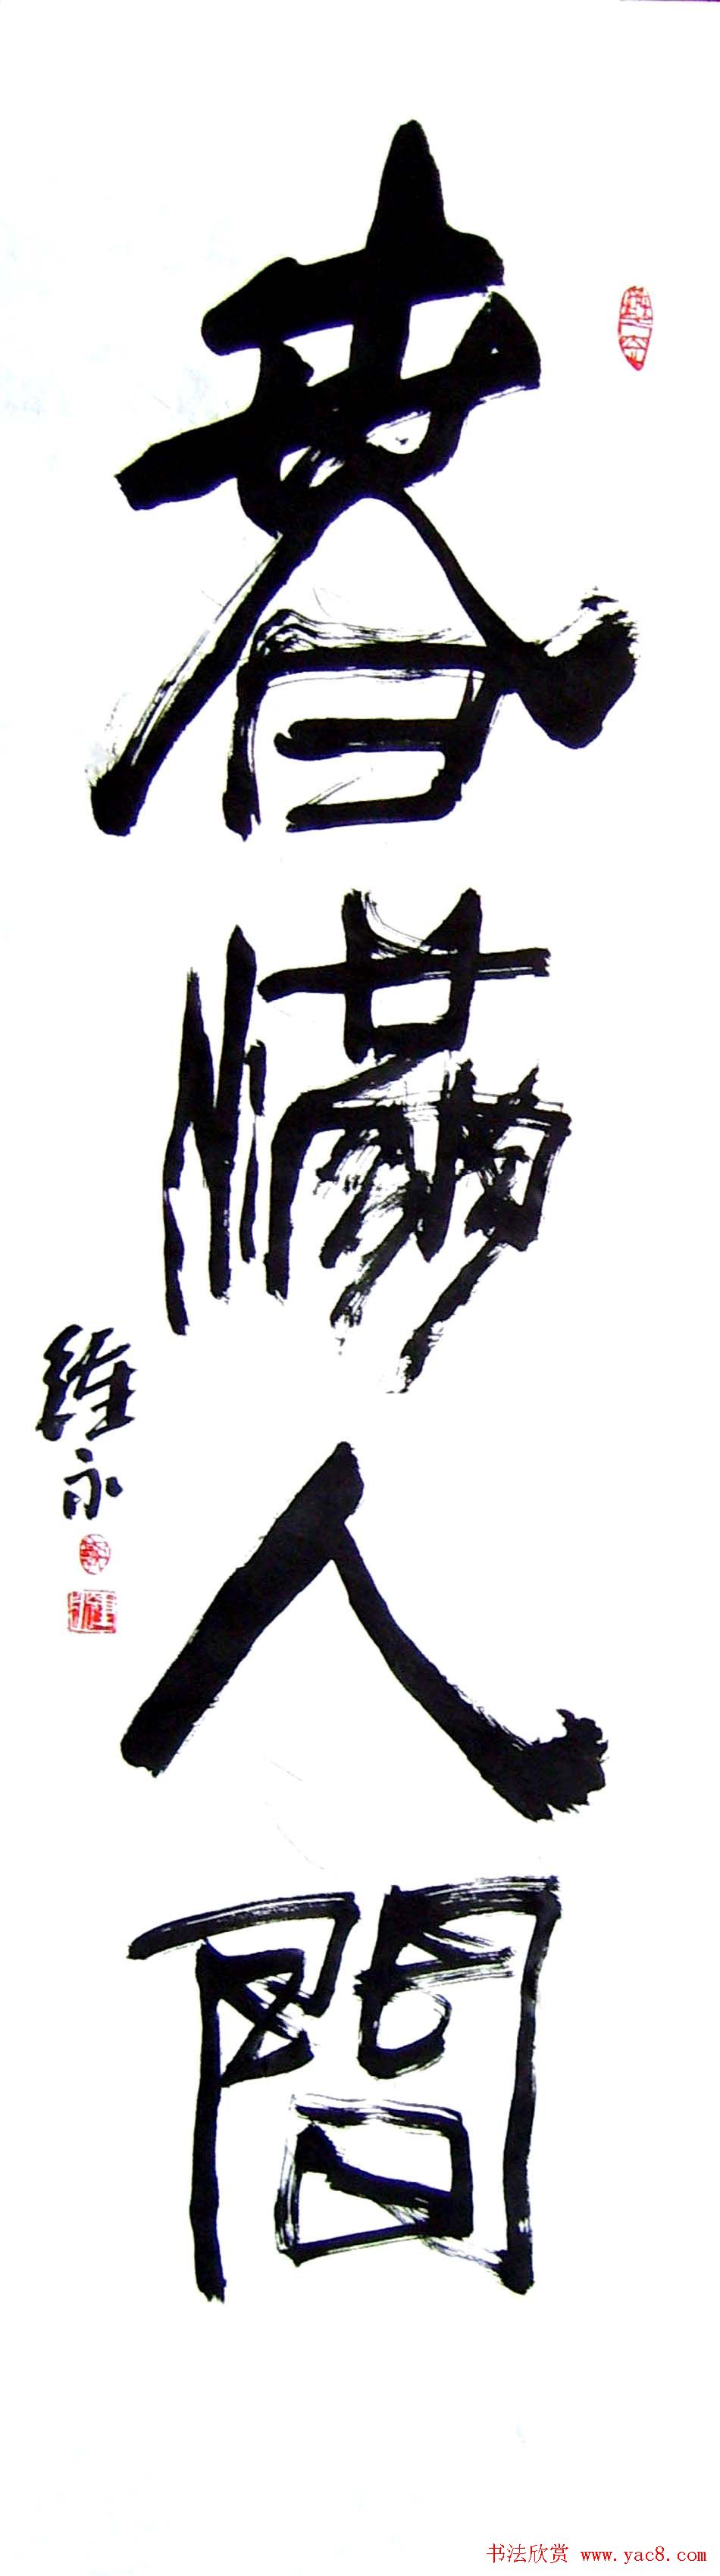 春滿人間
維永
书法欣赏 www.yac8.com